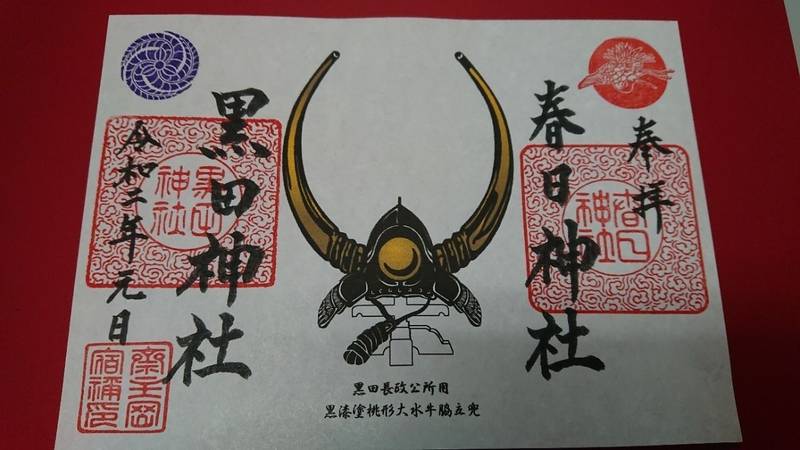 奉拝
春日神社
春日神社
黒田長政公所用
黒漆塗桃形大水牛脇立兜
黒田神社
黒田神社
令和二年元日